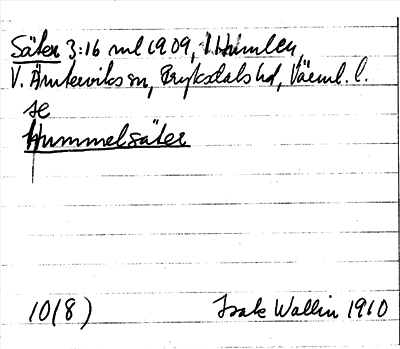 Säter 3:16 ml 1909, i Humlen,
V. Ämterviks sn, Fryksdals hd, Värml. l.
se
Hummelsäter
10(8)
Isak Wallin 1910